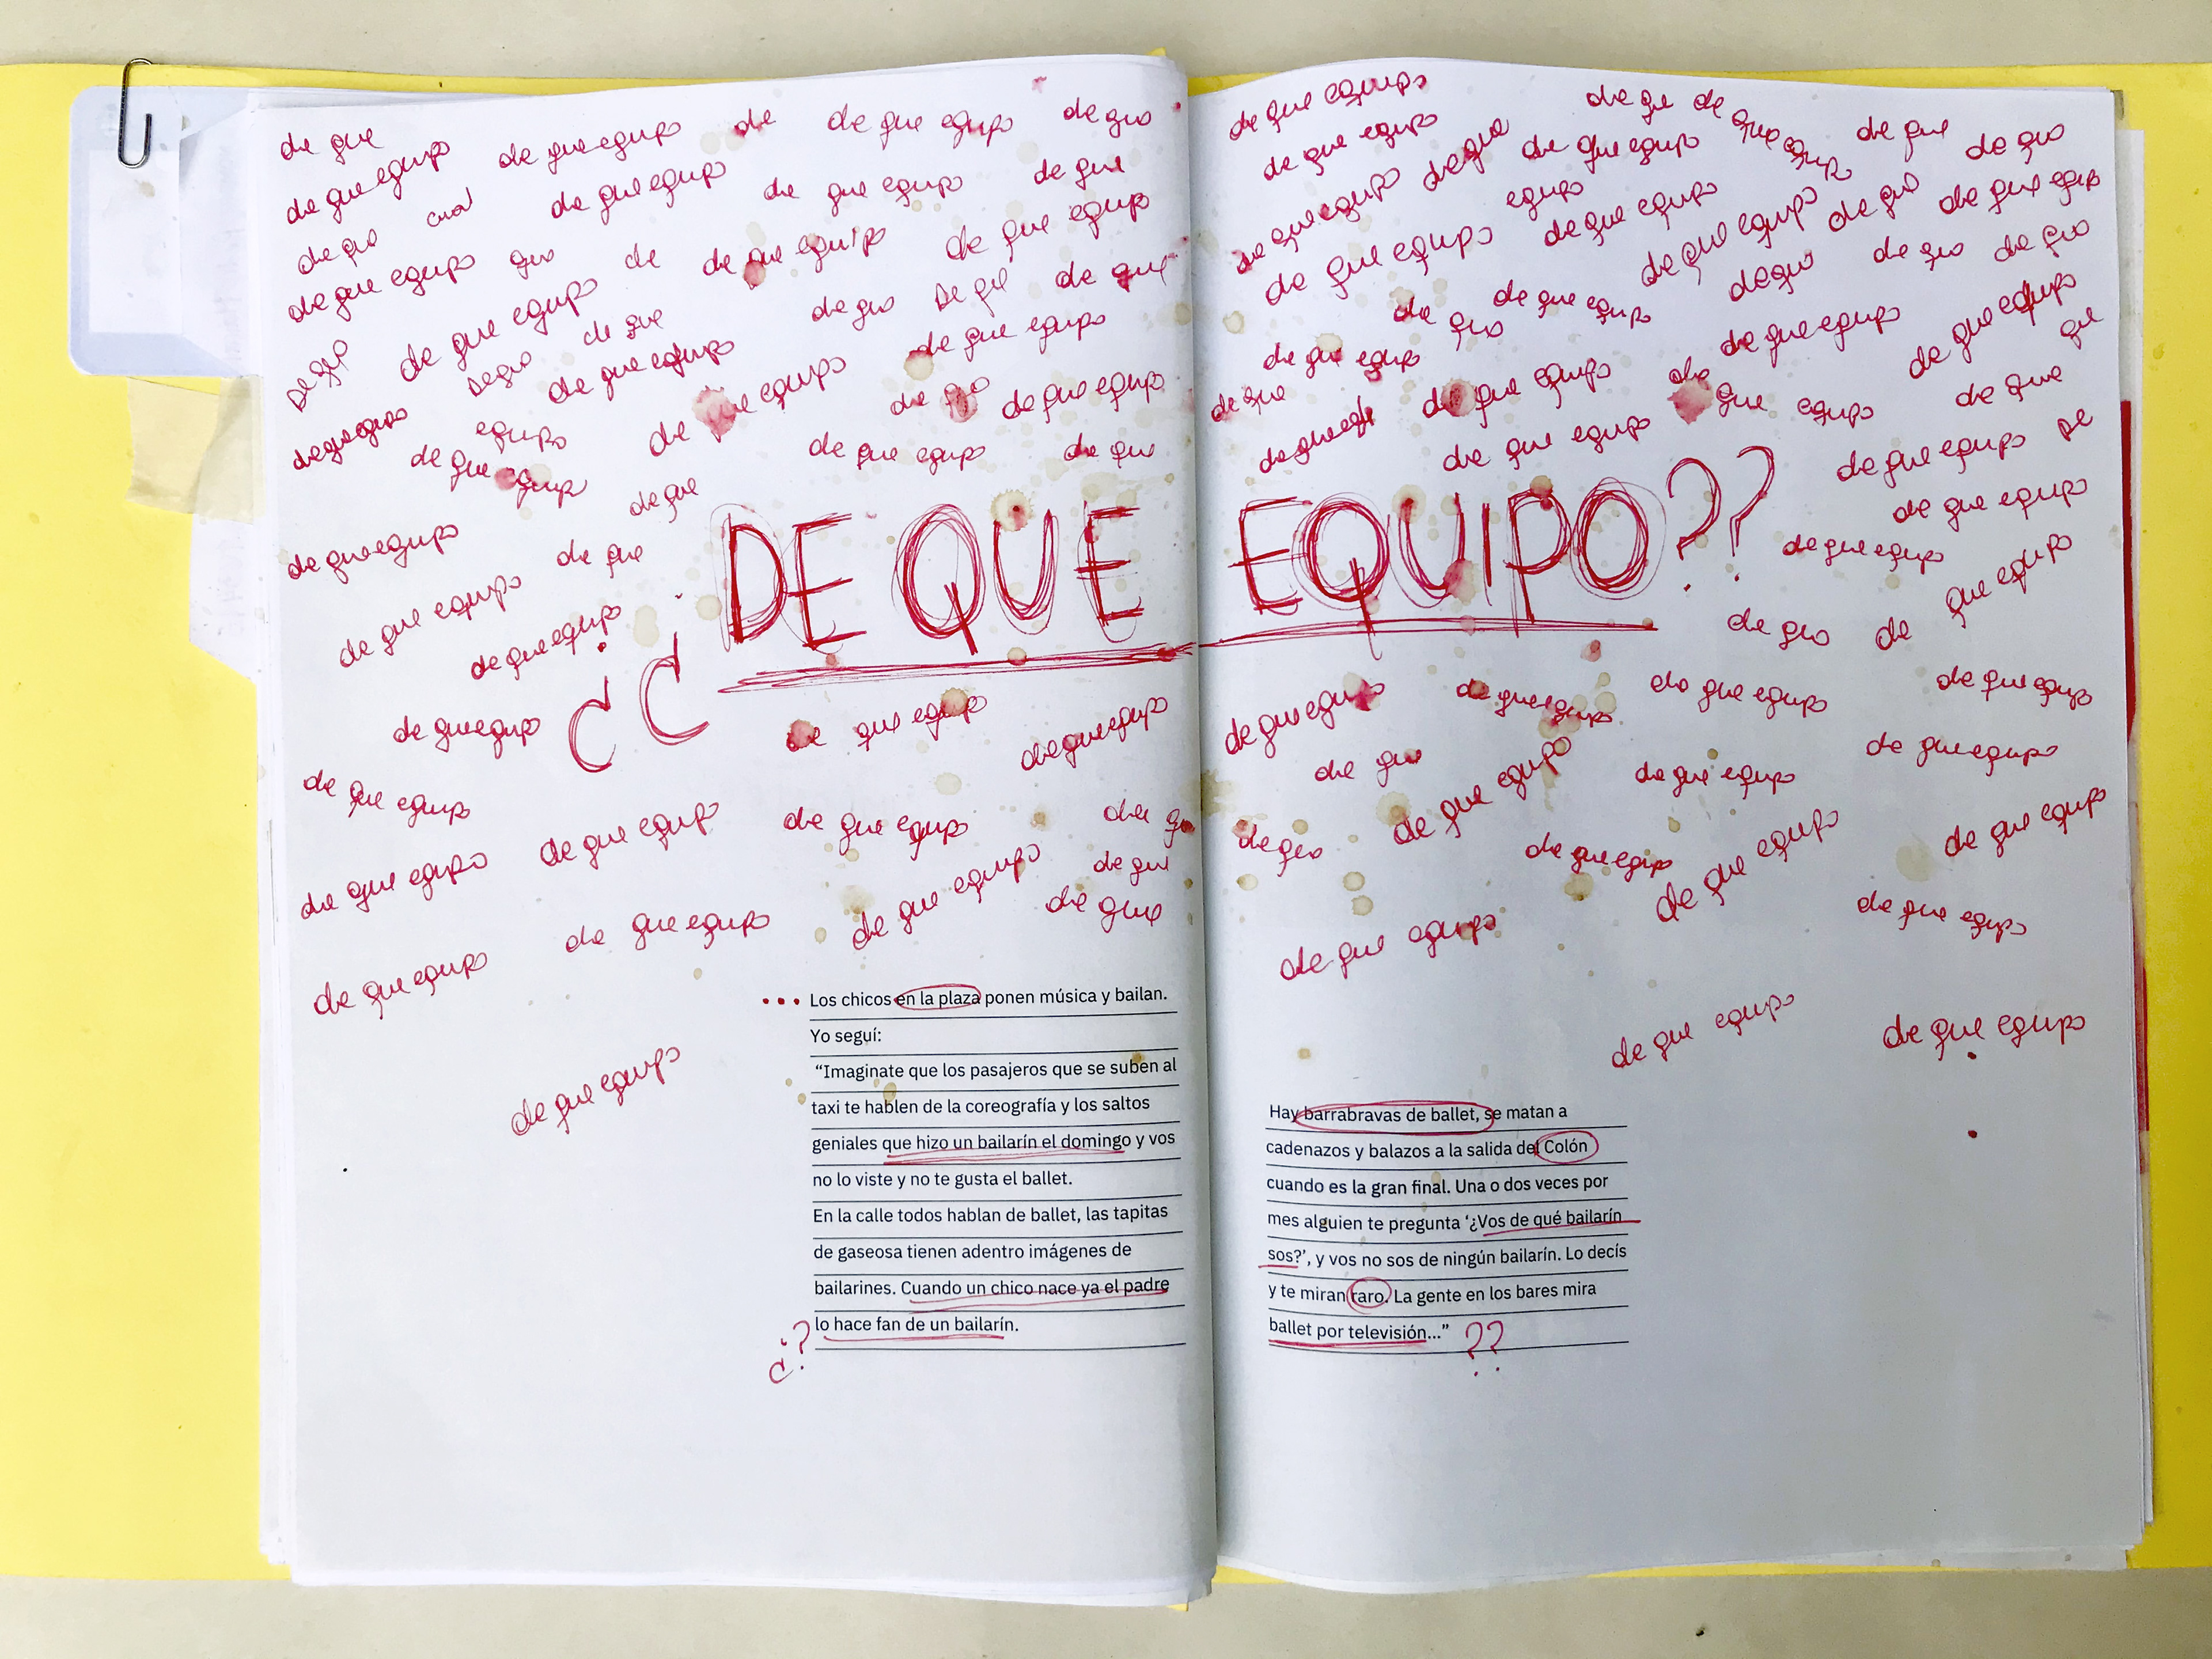 de que
de que equipo de que equipo de de que equipo de que
de que equipo de que equipo de que
de que equipo que de de que equipo de que equipo
de que equipo de que de que De que de que
De que De que de que equipo de que equipo de que equipo
de que equipo equipo de que de que equipo
de que equipo de que equipo de que equipo de que
de que
de que equipo de que
de que equipo
de que equipo
¿¿DE QUE
de que equipo de que equipo
de que equipo
de que equipo de que equipo de que equipo
de que equipo de que equipo de que
de que equipo de que equipo de que
de que equipo
de que equipo
... Los chicos en la plaza ponen música y bailan.
Yo seguí:
“Imaginate que los pasajeros que se suben al
taxi te hablen de la coreografía y los saltos
geniales que hizo un bailarín el domingo y vos
no lo viste y no te gusta el ballet.
En la calle todos hablan de ballet, las tapitas
de gaseosa tienen adentro imágenes de
bailarines. Cuando un chico nace ya el padre
lo hace fan de un bailarín.
¿?
de que equipo de que de que equipo de que
de que equipo de que de que equipo de que
de que equipo equipo de que equipo de que de que equipo
de que equipo de que equipo de que de que
de que de que equipo de que
de que equipo de que equipo de que equipo
de que de que equipo de que equipo de que
de que equipo de que equipo de
de que equipo
EQUIPO??
de que equipo
de que de que equipo
de que equipo de que equipo de que equipo de que equipo
de que de que equipo de que equipo de que equipo
de que de que equipo de que equipo de que equipo
de que equipo de que equipo
de que equipo de que equipo
Hay barrabravas de ballet, se matan a
cadenazos y balazos a la salida del Colón
cuando es la gran final. Una o dos veces por
mes alguien te pregunta ‘¿Vos de qué bailarín
sos?’, y vos no sos de ningún bailarín. Lo decís
y te miran raro. La gente en los bares mira
ballet por televisión...” ??